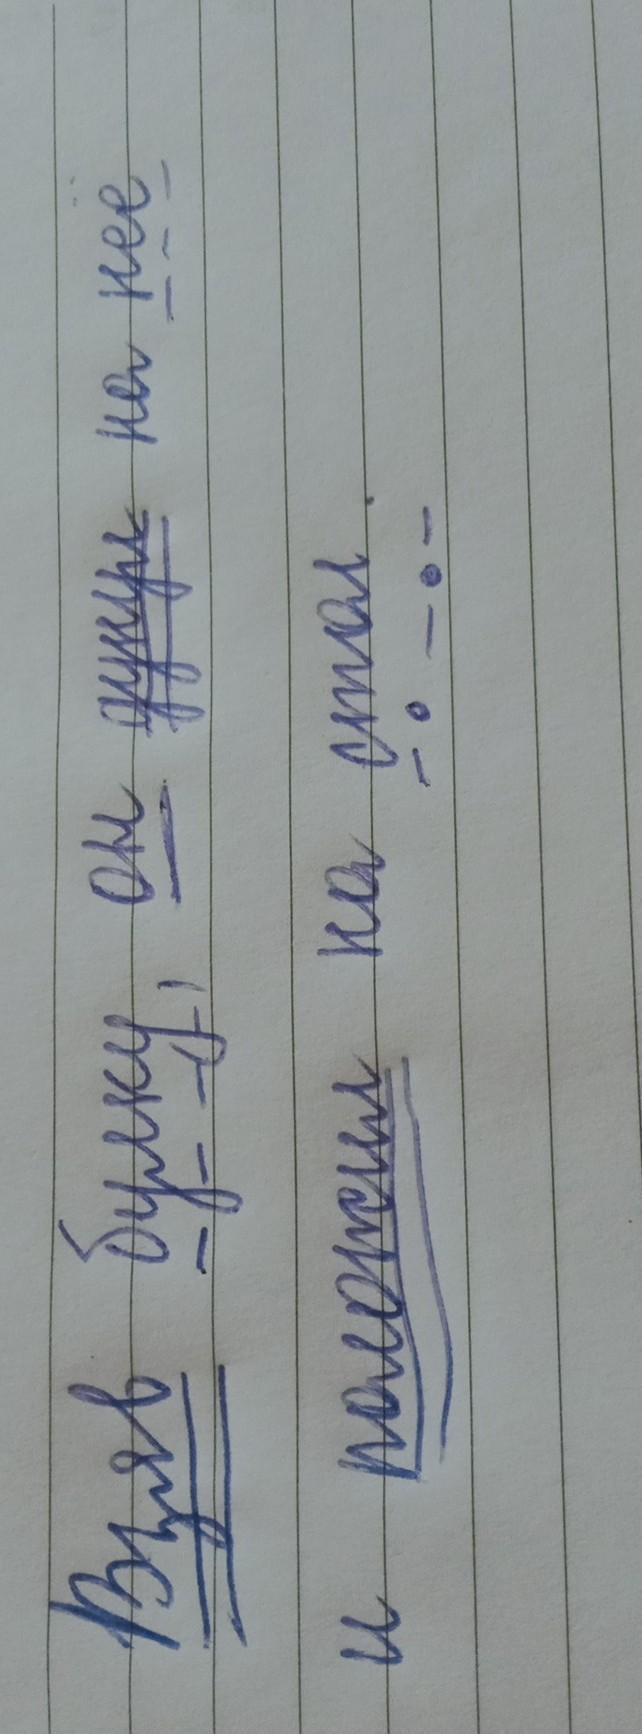 Взяв булку, он дунул на неё
и положил на стол.